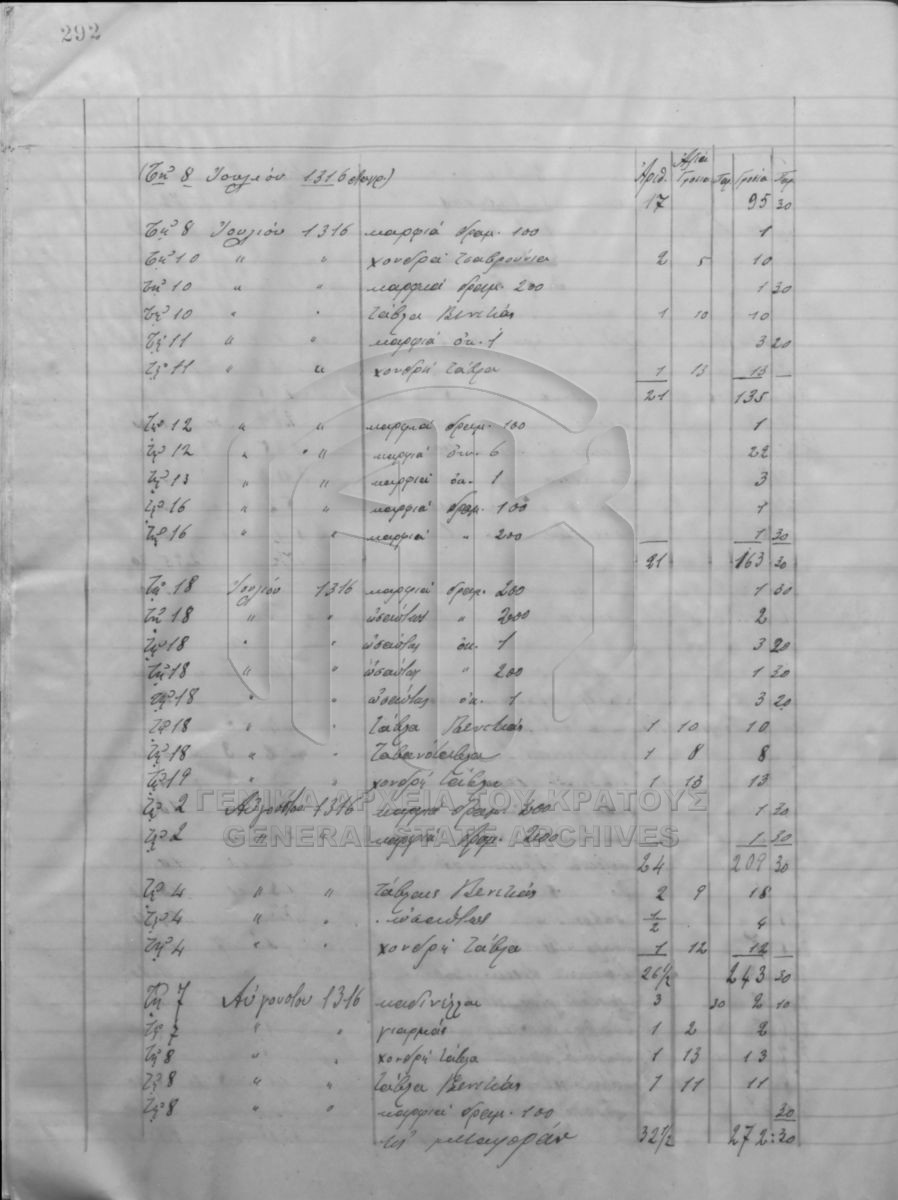 292
Ἀξία
(Τῇ 8 Ἰουλίου 1316 Ἀριθ. Γρόσια Παρ Γρόσια Παρ
17 95 30
Τῇ 8 Ἰουλίου 1316 καρφιά δραμ. 100 1
Τῇ 10 " " χονδρά 2 5 10
Τῇ 10 " " καρφιά δραμ. 200 1 30
Τῇ 10 " " τάβλα Βενετιάς 1 10 10
Τῇ 11 " " καρφιά ὀκ. 1 3 20
Τῇ 11 " " χονδρή τάβλα 1 13 13 —
21 135
Τῇ 12 " " καρφιά δραμ. 100 1
Τῇ 12 " " καρφιά ὀκ. 6 22
Τῇ 13 " " καρφιά ὀκ. 1 3
Τῇ 16 " " καρφιά δραμ. 100 1
Τῇ 16 " " καρφιά " 200 1 30
21 163 30
Τῇ 18 Ἰουλίου 1316 καρφιά δραμ. 200 1 30
Τῇ 18 " " ὡσαύτως " 200 2
Τῇ 18 " " ὡσαύτως ὀκ. 1 3 20
Τῇ 18 " " ὡσαύτως " 200 1 30
Τῇ 18 " " ὡσαύτως ὀκ. 1 3 20
Τῇ 18 " " τάβλα Βενετιάς 1 10 10
Τῇ 18 " " ταβανοτάβλα 1 8 8
Τῇ 19 " " χονδρή τάβλα 1 13 13
ΓΕΝΙΚΑ ΑΡΧΕΙΑ ΤΟΥ ΚΡΑΤΟΥΣ
Τῇ 2 Αὐγούστου 1316 καρφιά δραμ. 200 1 30
GENERAL STATE ARCHIVES
Τῇ 2 " " καρφιά δραμ. 200 1 30
24 209 30
Τῇ 4 " " τάβλαις Βενετιάς 2 9 18
Τῇ 4 " " ὡσαύτως 1/2 4
Τῇ 4 " " χονδρή τάβλα 1 12 12
26 1/2 243 30
Τῇ 7 Αὐγούστου 1316 3 30 2 10
Τῇ 7 " " γιαρμάς 1 2 2
Τῇ 8 " " χονδρή τάβλα 1 13 13
Τῇ 8 " " τάβλα Βενετιάς 1 11 11
Τῇ 8 " " καρφιά δραμ. 100 30
εἰς μεταφοράν 32 1/2 272:30